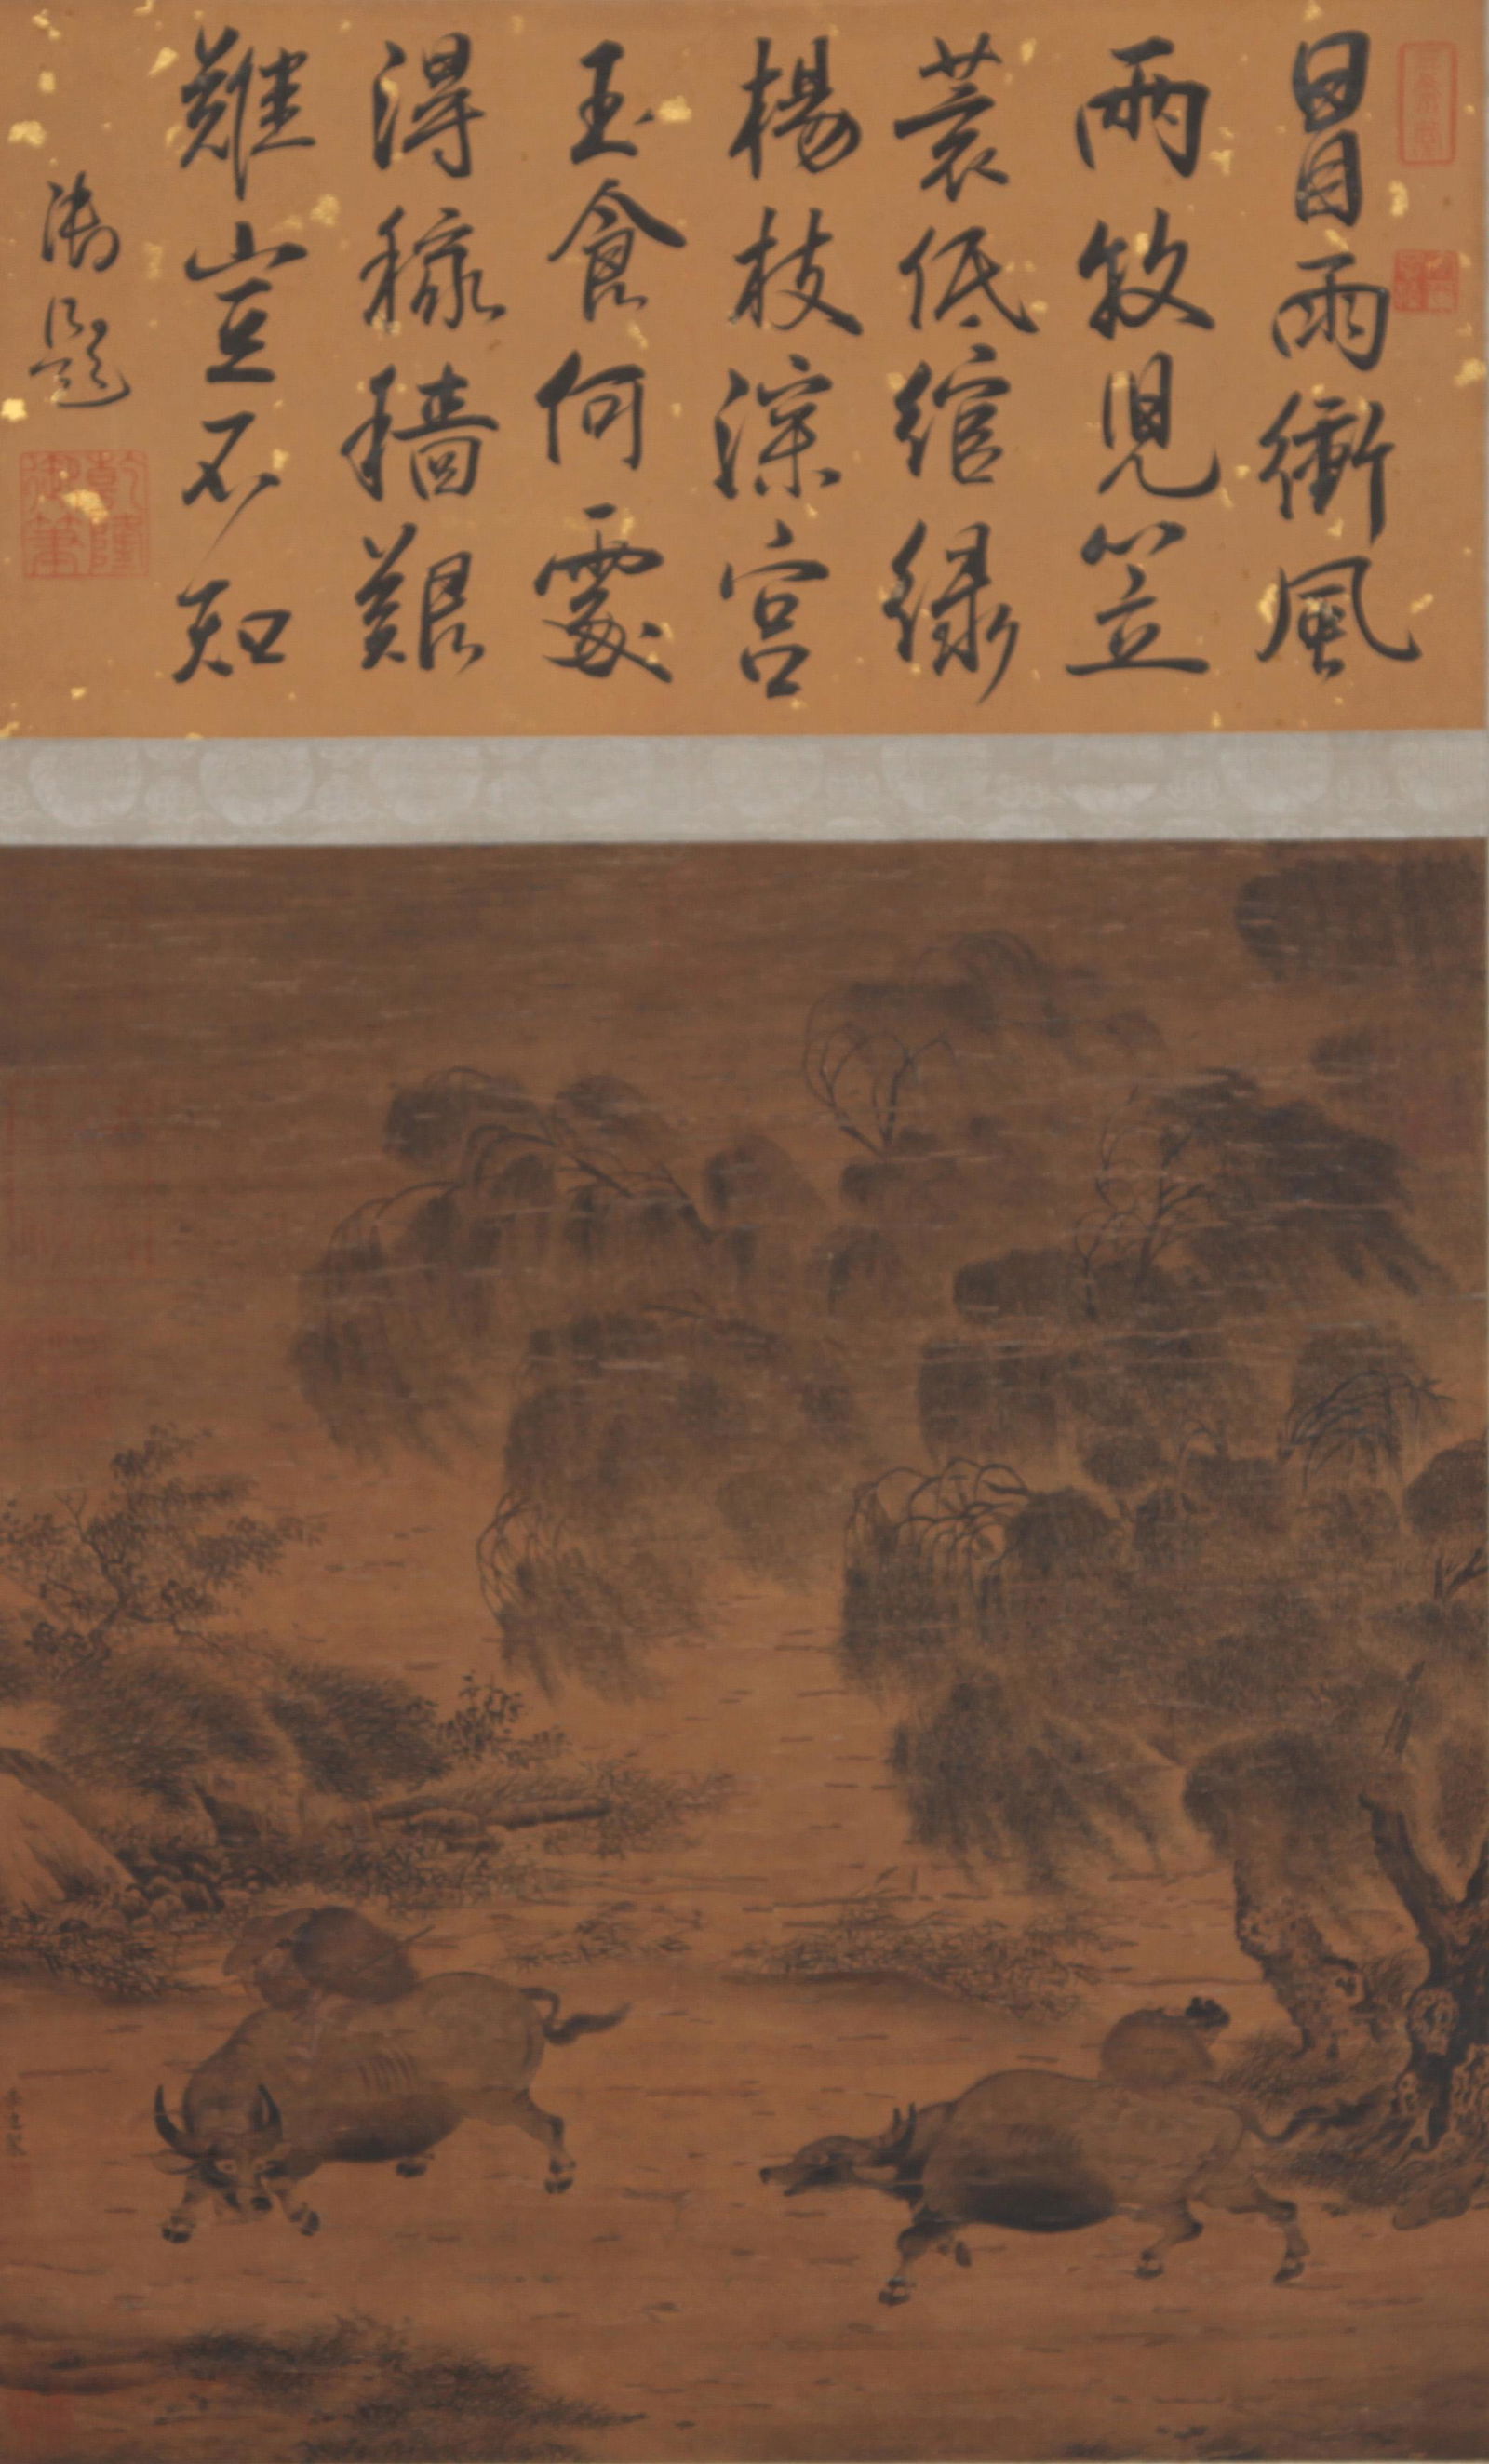 冒雨衝風
兩牧兒笠
蓑低綰綠
楊枝深宮
玉食何處
得稼穡艱
難豈不知
御題
乾隆御筆